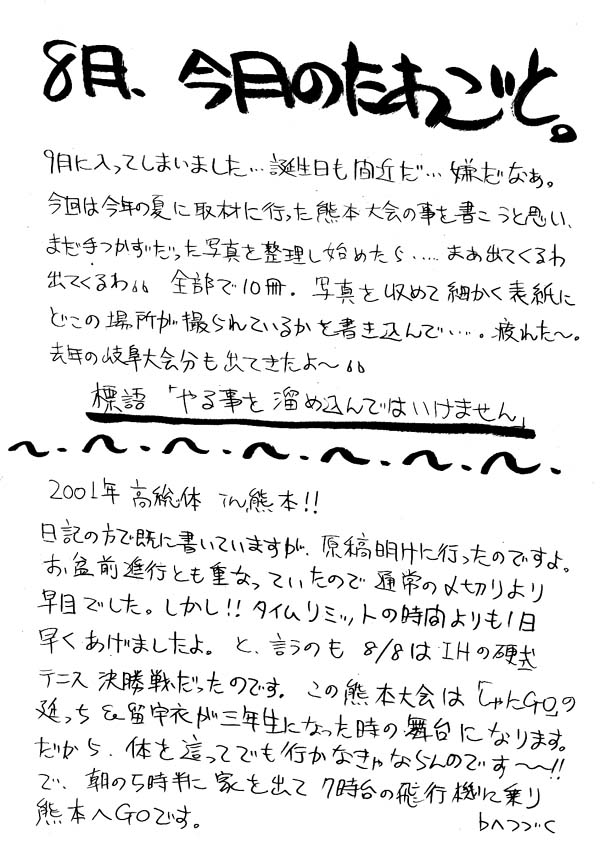 8月、今月のたわごと。
9月に入ってしまいました…誕生日も間近だ…嫌だなぁ。
今回は今年の夏に取材に行った熊本大会の事を書こうと思い、
まだ手つかずだった写真を整理し始めたら……まぁ出てくるわ
出てくるわ。。全部で10冊。写真を収めて細かく表紙に
どこの場所が撮られているかを書き込んで……。疲れた〜。
去年の岐阜大会分も出てきたよ〜。。
標語「やる事を溜め込んではいけません」
2001年高総体 in熊本!!
日記の方で既に書いていますが、原稿明けに行ったのですよ。
お盆前進行とも重なっていたので通常の〆切りより
早目でした。しかし!!タイムリミットの時間よりも1日
早くあげましたよ。と、言うのも 8/8はIHの硬式
テニス決勝戦だったのです。この熊本大会は「しゃにGO」の
延っち&留宇衣が三年生になった時の舞台になります。
だから、体を這ってでも行かなきゃならんのです〜〜!!
で、朝の5時半に家を出て 7時台の飛行機に乗り
熊本へGOです。
bへつづく